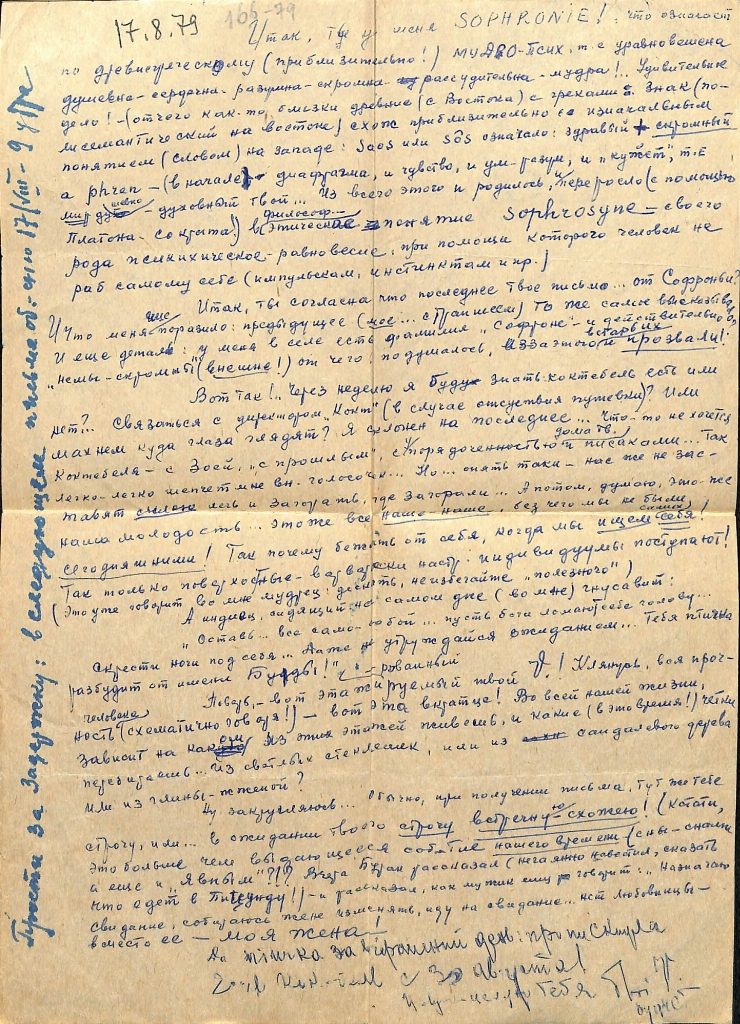 17.8.79
166-79
Итак, ты у меня SOPHRONIE! что означает
по древнегреческому (приблизительно!) мудро-псих. т.е уравновешена
душевно-сердечна-разумна-скромна рассудительна-мудра!.. Удивительное
дело! (отчего как-то, близки древние (с Востока) с греками. Знак (по-
лисемантический на востоке) схож приблизительно с изначальным
понятием (словом) на западе: Saos или Sôs означало: здравый + скромный
а phren-(в начале) диафрагма, и чувство, и ум-разум, и т.е
духовный твой... Из всего этого и родилось, переросло (с помощью
Платона-Сократа!) в философ. этическое понятие Sophrosyne-своего
рода психическое-равновесие, при помощи которого человек не
раб самому себе (импульскам, инстинктам и пр.)
Итак, ты согласна что последнее твое письмо... от Софроньи?
И что меня поразило: предыдущее (мое... с Траписем) то же самое высказывал
И еще деталь: у меня в селе есть фамилия "Софроне"-и действительно он
"немы-скромны" (внешне!) от чего, подумалось, из за этого и прозвали!
Вот так!.. Через неделю я буду знать коктебель есть или
нет?.. Связаться с директором "Кокт" (в случае отсуствия путевки)? Или
махнем куда глаза глядят? Я склонен на последнее... Что-то не хочется
Коктебеля-с Зоей, "с прошлым", с упорядоченностью дома тв. и писаками... Так
легко-легко шепчет мне вн. голосочек... Но... опять таки-нас же не зас-
тавят силою лечь и загорать, где загорали... А потом, думаю, это-же
наша молодость... это же все наше-наше, без чего мы не были
сегодняшними! Так почему бежать от себя, когда мы ищем самих себя!
Так только поверхостные-варварски настр. индивидуумы поступают!
(Это уже говорит во мне мудрец: дескать, неизбегайте "полезного")
А индивид, сидящий на самом дне (во мне) гнусавит:
"Оставь... все само-собой... пусть боги ломают себе голову...
Скрести ноги под себя... Даже не утруждайся ожиданием... Тебя птичка
разбудит от имени Будды!"
Поверь,-вот эта твой ! Клянусь, вся проч-
ность человека (схематично говоря!)-вот эта вкратце! Во всей нашей жизни,
зависит на каком из этих этажей живешь, и какие (в это время!) четки
перебираешь... из светлых стекляшек, или из сандалового дерева
или из глины-жженой?
Ну закругляюсь... Обычно, при получении письма, тут же тебе
строчу, или... в ожидании твоего строчу встречную-схожею! (Кстати,
это больше чем выдающееся событие нашего времени (сны-снами
а еще и "явным"??! Вчера Буган рассказал (нечаянно навестил, сказать
что едет в Питсунду!)-и рассказал, как мужик ему говорит: "Назначаю
свидание, собираюсь жене изменять, иду на свидание... нет любовницы-
вместо ее-моя жена-
Да птичка за вчерашний день: пропискнула
с 30 августа!
тебя
Прости за задержку: в следующем письме об-сню 17/VIII-9 утра